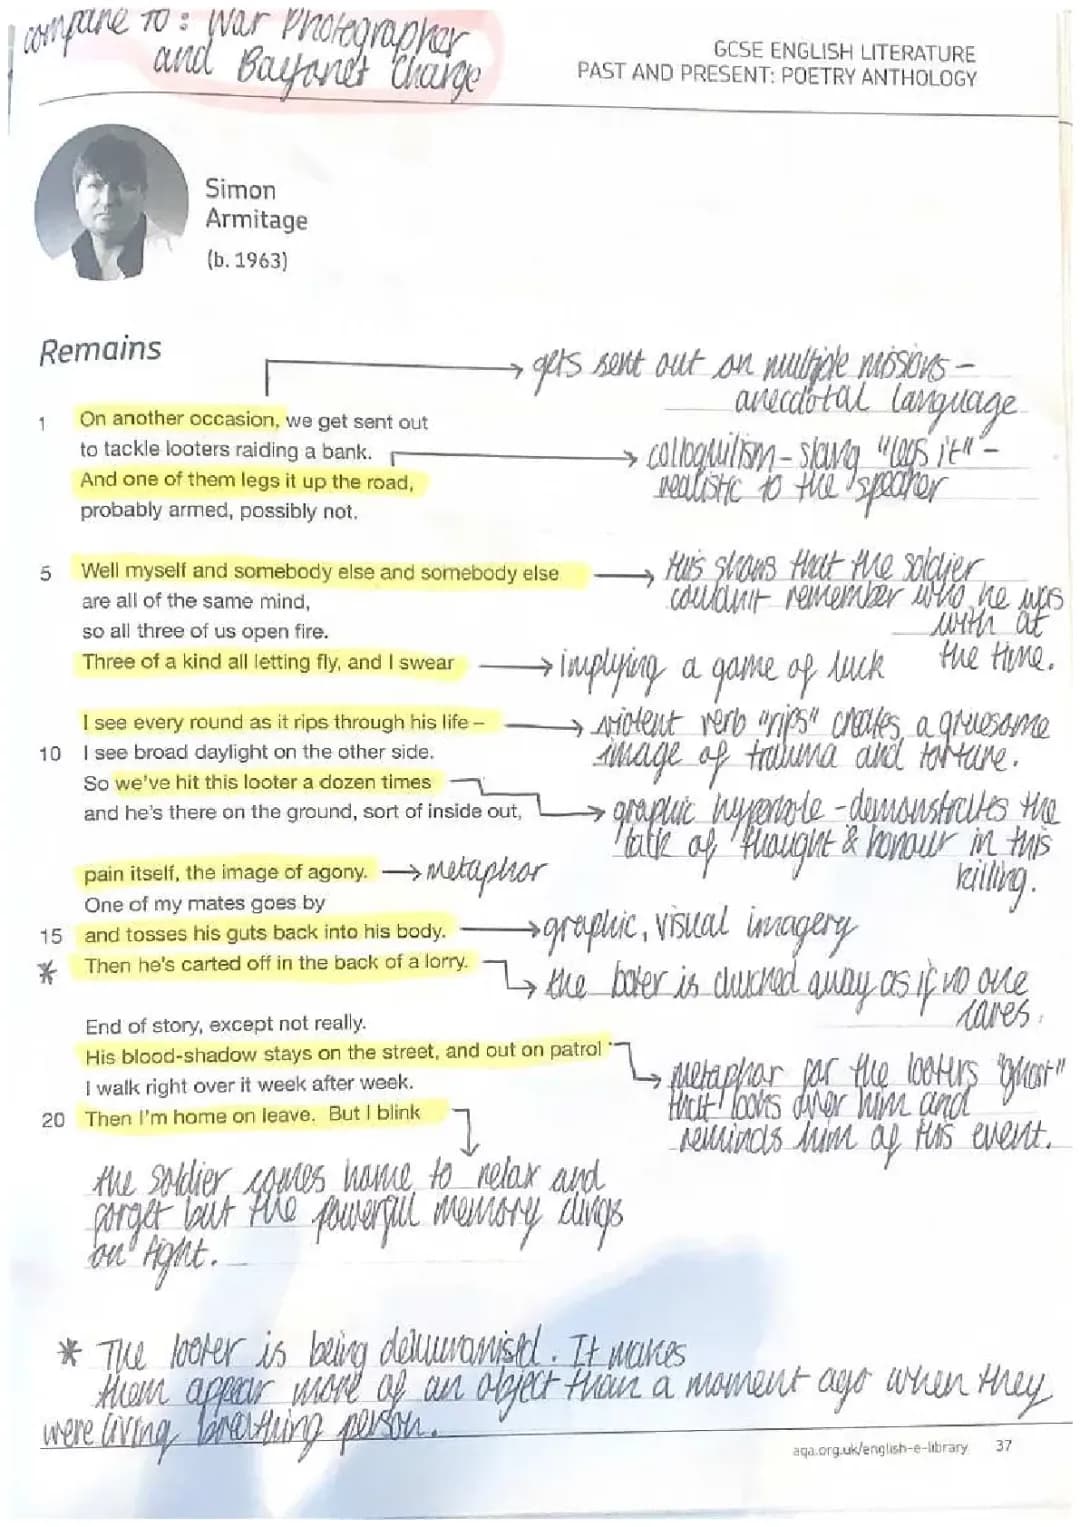 compare to: War Photographer
and Bayonet Charge
GCSE ENGLISH LITERATURE
PAST AND PRESENT: POETRY ANTHOLOGY
Simon
Armitage
(b. 1963)
Remains
gets sent out on multiple missions -
anecdotal language
1 On another occasion, we get sent out
to tackle looters raiding a bank.
colloquilism - slang "legs it" -
realistic to the speaker
And one of them legs it up the road,
probably armed, possibly not.
5 Well myself and somebody else and somebody else
this shows that the soldier
couldn't remember who he was
with at
the time.
are all of the same mind,
so all three of us open fire.
Three of a kind all letting fly, and I swear
implying a game of luck
I see every round as it rips through his life –
violent verb "rips" creates a gruesome
image of trauma and torture.
10 I see broad daylight on the other side.
So we've hit this looter a dozen times
and he's there on the ground, sort of inside out,
graphic hyperbole - demonstrates the
lack of thought & honour in this
killing.
pain itself, the image of agony.
metaphor
One of my mates goes by
15 and tosses his guts back into his body.
graphic, visual imagery
* Then he's carted off in the back of a lorry.
the looter is chucked away as if no one
cares.
End of story, except not really.
His blood-shadow stays on the street, and out on patrol
metaphor for the looters "ghost"
that looks over him and
reminds him of this event.
I walk right over it week after week.
20 Then I'm home on leave. But I blink
the soldier comes home to relax and
forget but the powerful memory clings
on tight.
* The looter is being dehumanised. It makes
them appear more of an object than a moment ago when they
were living breathing person.
aqa.org.uk/english-e-library 37